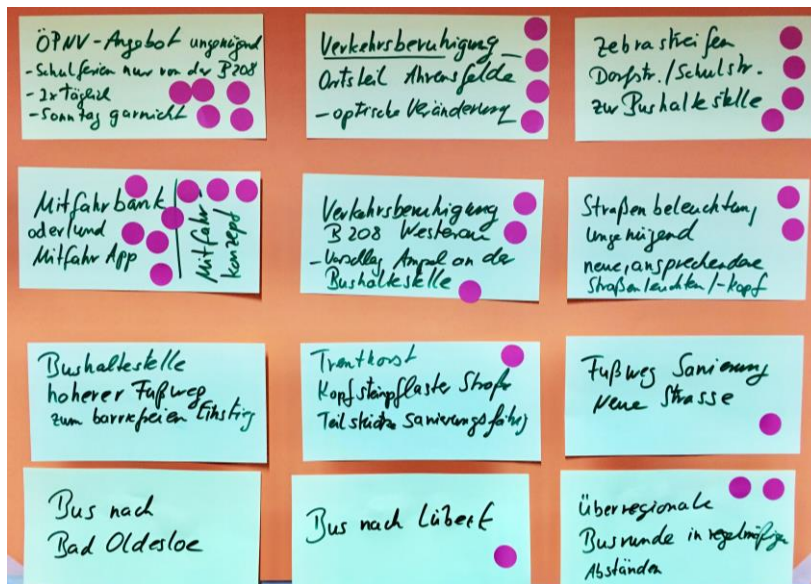 ÖPNV-Angebot ungenügend
- Schulferien nur von der B208
- 2x täglich
- Sonntag garnicht
Verkehrsberuhigung
Ortsteil Ahrensfelde
- optische Veränderung
Zebrastreifen
Dorfstr./Schulstr.
zur Bushaltestelle
Mitfahrbank
oder/und
Mitfahr App
Mitfahr-
konzept
Verkehrsberuhigung
B 208 Westerau
- Vorschlag Ampel an der
Bushaltestelle
Straßenbeleuchtung
ungenügend
neue, ansprechendere
Straßenleuchten/-kopf
Bushaltestelle
hoherer Fußweg
zum barrierefreien Einstieg
Trenthorst
Kopfsteinpflaster Straße
Teilstücke Sanierungsfähig
Fußweg Sanierung
Neue Strasse
Bus nach
Bad Oldesloe
Bus nach Lübeck
überregionale
Busrunde in regelmäßigen
Abständen